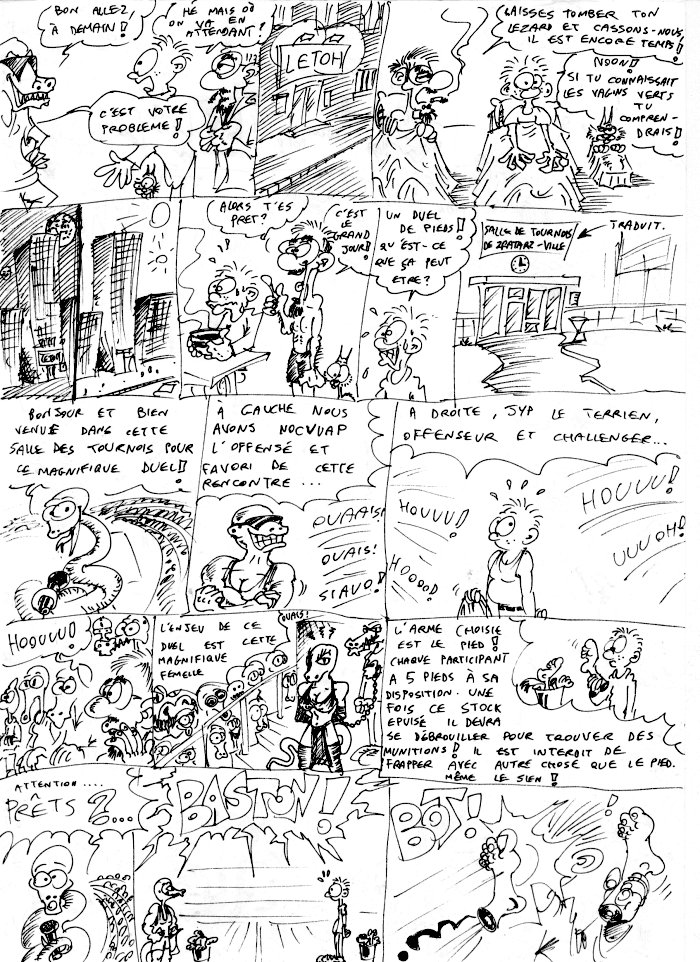 BON ALLEZ,
À DEMAIN!
HÉ MAIS OÙ
ON VA EN
ATTENDANT?
C'EST VOTRE
PROBLEME!
LETOH
LAISSES TOMBER TON
LEZARD ET CASSONS-NOUS,
IL EST ENCORE TEMPS!
NOON!
SI TU CONNAISSAIT
LES VAGINS VERTS
TU
COMPREN-
DRAIS!
LETOH
ALORS T'ES
PRET?
C'EST
LE
GRAND
JOUR!
UN DUEL
DE PIEDS!
QU'EST-CE
QUE ÇA PEUT
ETRE?
SALLE DE TOURNOIS
DE ZRATARZ-VILLE
TRADUIT.
BONJOUR ET BIEN
VENUE DANS CETTE
SALLE DES TOURNOIS POUR
CE MAGNIFIQUE DUEL!
À GAUCHE NOUS
AVONS NOCVUAP
L'OFFENSÉ ET
FAVORI DE CETTE
RENCONTRE...
OUAAIS!
OUAIS!
SIAVO!
A DROITE, JYP LE TERRIEN,
OFFENSEUR ET CHALLENGER...
HOUUU!
HOUUU!
HOOOO!
UUUOH!
HOOUUU!
L'ENJEU DE CE
DUEL EST CETTE
MAGNIFIQUE
FEMELLE
OUAIS!
L'ARME CHOISIE
EST LE PIED!
CHAQUE PARTICIPANT
A 5 PIEDS À SA
DISPOSITION. UNE
FOIS CE STOCK
EPUISÉ IL DEVRA
SE DÉBROUILLER POUR TROUVER DES
MUNITIONS! IL EST INTERDIT DE
FRAPPER AVEC AUTRE CHOSE QUE LE PIED.
MÊME LE SIEN!
ATTENTION....
PRÊTS?...
BASTON!
BOT!